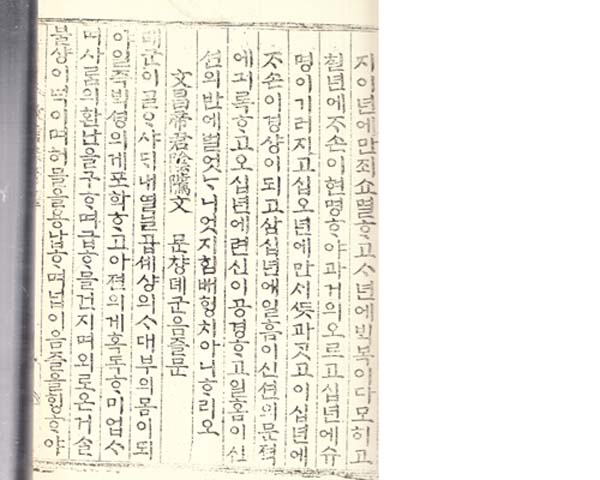 지이년에만죄쇼멸ᄒᆞ고ᄉᆞ년에빅복이다모히고
칠년에ᄌᆞ손이현명ᄒᆞ야과거의오르고십년에슈
명이기러지고십오년에만ᄉᆡ ᄯᅳᆺ과ᄀᆞᆺ고이십년에
ᄌᆞ손이경샹이되고삼십년에일흠이신션의문젹
에긔록ᄒᆞ고오십년에텬신이공경ᄒᆞ고일홈이신
션의반에벌엇ᄂᆞ니엇지힘ᄡᅥᄒᆡᆼ치아니ᄒᆞ리오
文昌帝君陰騭文 문창뎨군음즐문
뎨군이ᄀᆞᆯᄋᆞ샤ᄃᆡ내열닐곱셰샹의ᄉᆞ대부의몸이되
여일즉ᄇᆡᆨ셩의게포학ᄒᆞ고아젼의게혹독ᄒᆞ미업ᄉᆞ
며사ᄅᆞᆷ의환난을구ᄒᆞ며급ᄒᆞᆷ믈건지며외로온거슬
불샹이넉이며허믈을용납ᄒᆞ며넙이음즐을ᄒᆡᆼᄒᆞ야